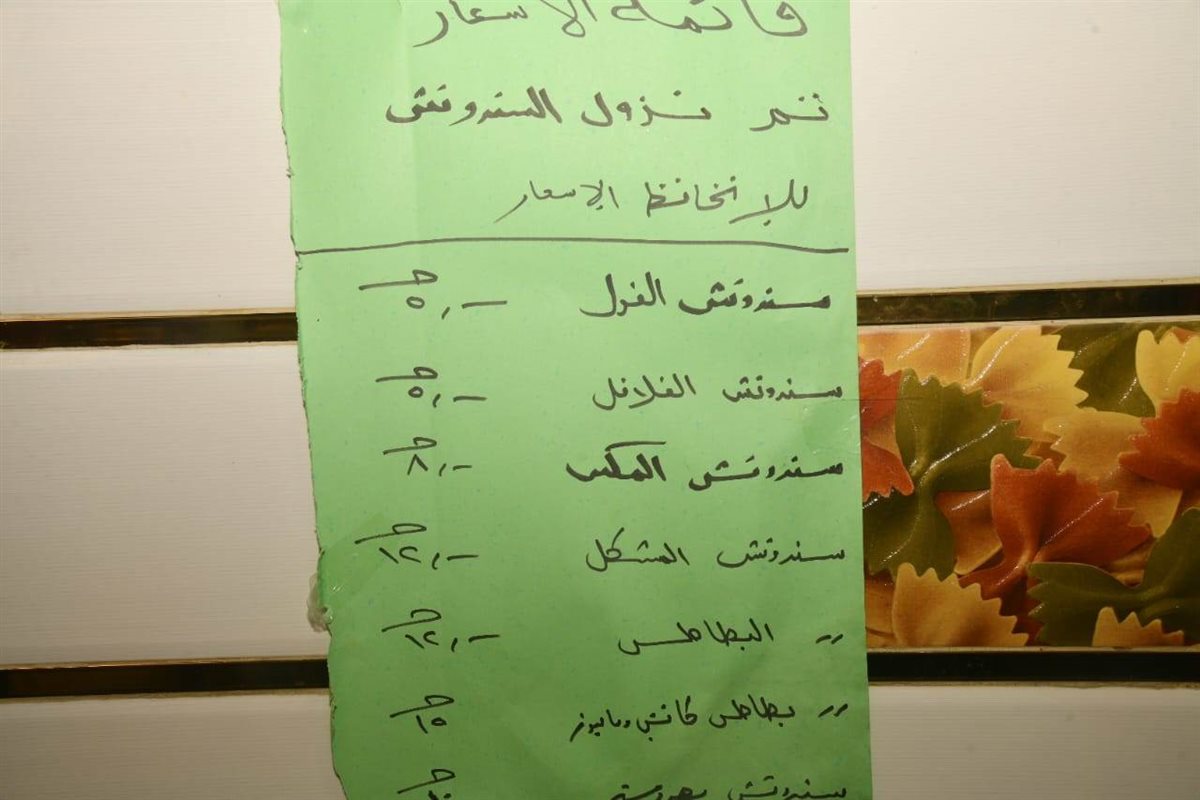 قائمة الاسعار
تم نزول السندوتش
للإنخافظ الإسعار
سندوتش الفول ٥,– ج
سندوتش الفلافل ٥,– ج
سندوتش المكس ٨,– ج
سندوتش المشكل ١٢,– ج
〃 البطاطس ١٢,– ج
〃 بطاطس كاتشب ومايونز ١٥ ج
سندوتش